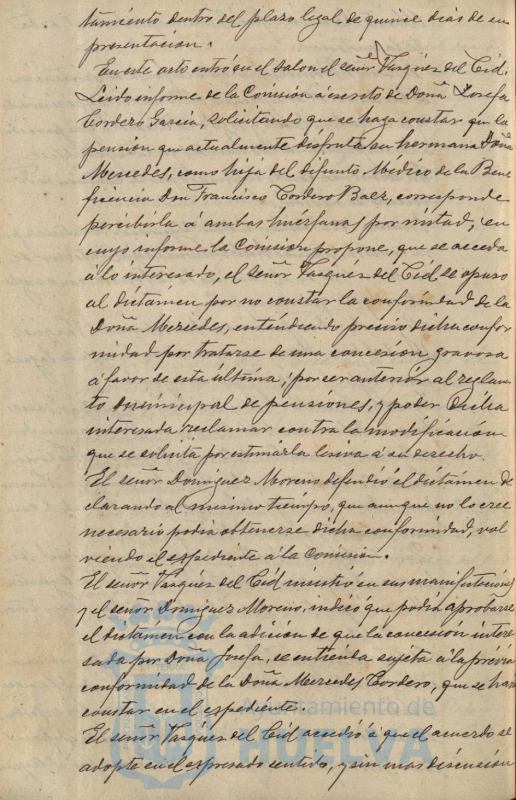 tamiento dentro del plazo legal de quince dias de su
presentacion.
En este acto entró en el salon el señor Vasquez del Cid.
Leido informe de la Comision á escrito de Doña Josefa
Cordero Garcia, solicitando que se haga constar que la
pension que actualmente disfruta su hermana Doña
Mercedes, como hija del difunto Médico de la Bene
ficencia Don Francisco Cordero Baez, corresponde
percibirla á ambas huérfanas por mitad, en
cuyo informe la Comision propone, que se acceda
á lo interesado, el señor Vasquez del Cid se opuso
al dictámen por no constar la conformidad de la
Doña Mercedes, entendiendo preciso dicha confor
midad por tratarse de una concesion gravosa
á favor de esta última; por ser anterior al reglamen
to municipal de pensiones, y poder dicha
interesada reclamar contra la modificacion
que se solicita por estimarla lesiva á su derecho.
El señor Dominguez Moreno defendió el dictámen de
clarando al mismo tiempo, que aunque no lo cree
necesario podia obtenerse dicha conformidad, vol
viendo el expediente á la Comision.
El señor Vasquez del Cid insistió en sus manifestaciones
y el señor Dominguez Moreno, indicó que podia aprobarse
el dictámen con la adicion de que la concesion intere
sada por Doña Josefa, se entienda sujeta á la prévia
conformidad de la Doña Mercedes Cordero, que se hará
constar en el expediente.
El señor Vasquez del Cid accedió á que el acuerdo se
adopte en el expresado sentido, y sin mas discusion
Ayuntamiento de
HUELVA